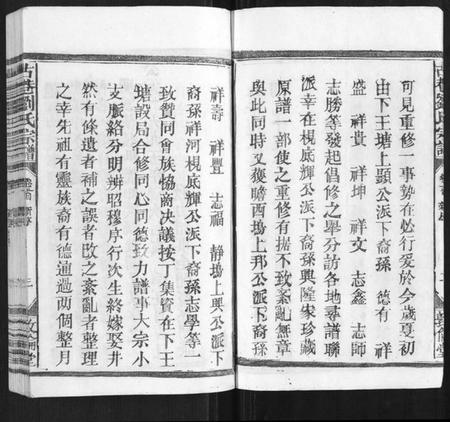 可見重修一事勢在必行爰於今歲夏初
由下王塘上顯公派下裔孫 德有 祥
盛 祥貴 祥坤 祥文 志鑫 志師
志勝等發起倡修之舉分訪各地尋譜聯
派幸在梘底輝公派下裔孫興隆家珍藏
原譜一部使之重修有據不致紊亂無章
與此同時又獲瞻酉塢上邦公派下裔孫
祥壽 祥豐 志福 靜塢上興公派下
裔孫祥河梘底輝公派下裔孫志學等一
致贊同會族協商決議按丁集資在下王
塘設局合修同心同德致力譜事大宗小
支脈絡分明辨昭穆序行次生終嫁娶井
然有條遺者補之誤者改之紊亂者整理
之幸先祖有靈族裔有德通過兩個整月
古巷劉氏宗譜
卷首
三
敦倫堂
古巷劉氏宗譜